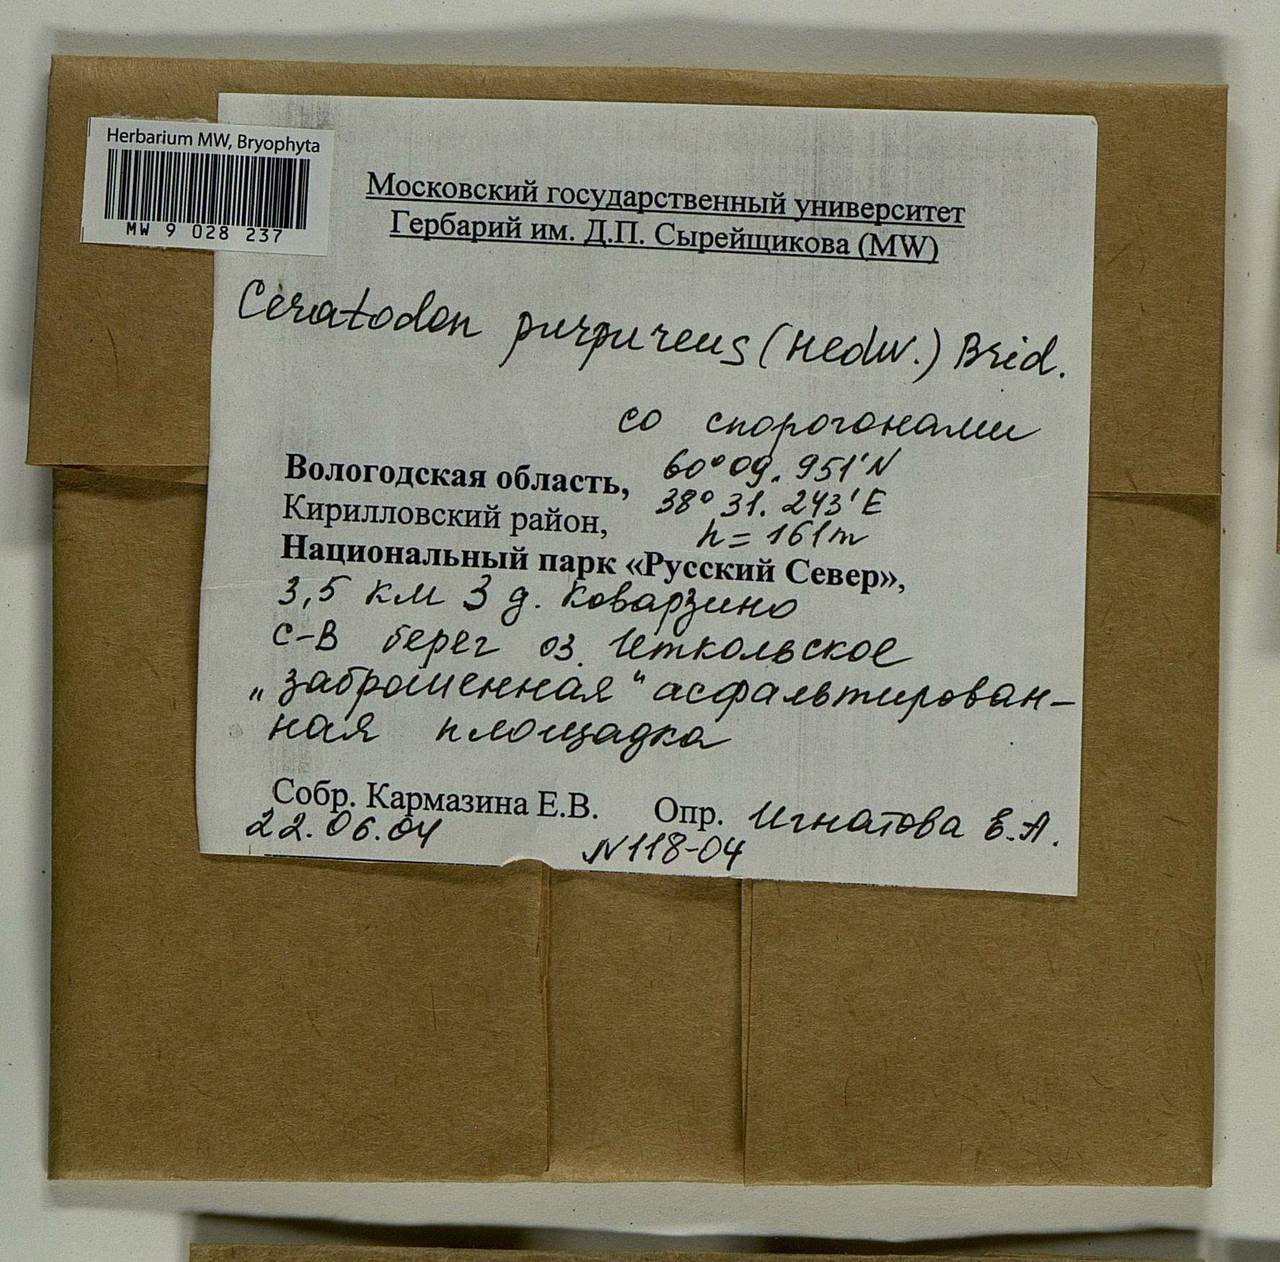 Herbarium MW, Bryophyta
MW 9 028 237
Московский государственный университет
Гербарий им. Д.П. Сырейщикова (MW)
Ceratodon purpureus (Hedw.) Brid.
со спорогонами
Вологодская область, 60° 09. 951' N
Кирилловский район, 38° 31. 243' E
h = 161m
Национальный парк «Русский Север»,
3,5 км З д. Коварзино
С-В берег оз.
„заброшенная“ асфальтирован-
ная площадка
Собр. Кармазина Е.В. Опр. Игнатова Е.А.
22.06.04
N118-04